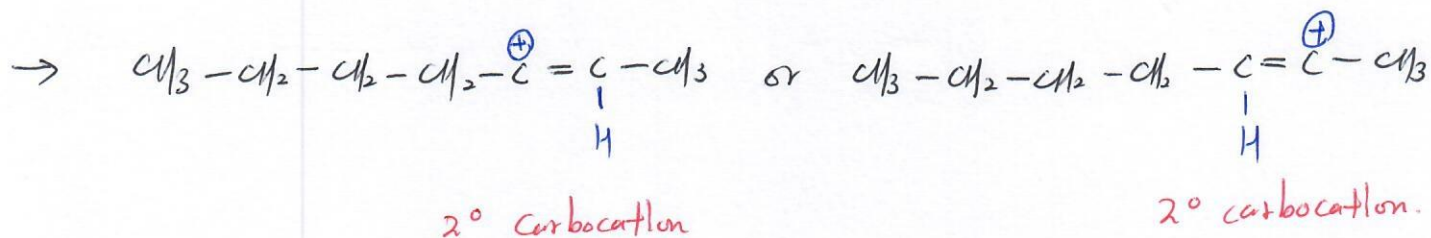 → CH3 - CH2 - CH2 - CH2 - C⊕ = C - CH3 or CH3 - CH2 - CH2 - CH2 - C = C⊕ - CH3
H H
2° carbocation 2° carbocation.